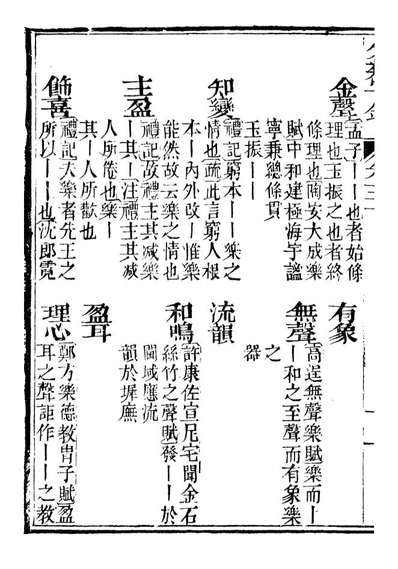 金聲
孟子丨丨也者始條
理也玉振之也者終
條理也陶安大成樂
賦中和建極海宇謐
寧兼總條貫
玉振丨丨
有象
無聲
高逞無聲樂賦樂而丨
丨和之至聲而有象樂
之
器
知變
禮記窮本丨丨樂之
情也疏此言窮人根
本丨內外改丨惟樂
能然故云樂之情也
流韻
和鳴
許康佐宣尼宅聞金石
絲竹之聲賦發丨丨於
闃域應流
韻於墀廡
主盈
禮記故禮主其減樂
丨其丨注禮主其減
人所倦也樂丨
其丨人所歡也
盈耳
飾喜
禮記大樂者先王之
所以丨丨也沈郎霓
理心
鄭方樂德教胄子賦盈
耳之聲詎作丨丨之教